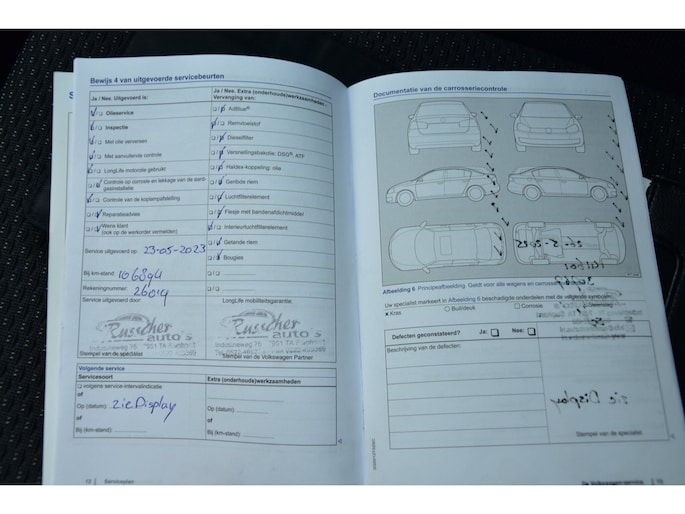 Bewijs 4 van uitgevoerde servicebeurten
Ja / Nee. Uitgevoerd is:
Ja / Nee. Extra (onderhouds)werkzaamheden -
Vervanging van:
Olieservice
Inspectie
Met olie verversen
Met aanvullende controle
LongLife motorolie gebruikt
Controle op corrosie en lekkage van de aard-
gasinstallatie
Controle van de koplampafstelling
Reparatieadvies
Wens klant
(ook op de werkorder vermelden)
AdBlue®
Remvloeistof
Dieselfilter
Versnellingsbakolie: DSG®, ATF
Haldex-koppeling: olie
Geribde riem
Luchtfilterelement
Flesje met bandenafdichtmiddel
Interieurluchtfilterelement
Getande riem
Bougies
Service uitgevoerd op: 23-05-2023
Bij km-stand: 106894
Rekeningnummer: 26014
Service uitgevoerd door
LongLife mobiliteitsgarantie:
Russcher
auto's
Russcher
auto's
Stempel van de specialist
Stempel van de Volkswagen Partner
Volgende service
Servicesoort
Extra (onderhouds)werkzaamheden
volgens service-intervalindicatie
of
Op (datum): zie Display
of
Bij (km-stand):
of
Op (datum):
of
Bij (km-stand):
12 Serviceplan
Documentatie van de carrosseriecontrole
Afbeelding 6 Principeafbeelding: Geldt voor alle wagens en carrosserie
Uw specialist markeert in Afbeelding 6 beschadigde onderdelen met de volgende symbolen:
× Kras
Buil/deuk
Corrosie
Defecten geconstateerd?
Ja:
Nee:
Beschrijving van de defecten:
Stempel van de specialist